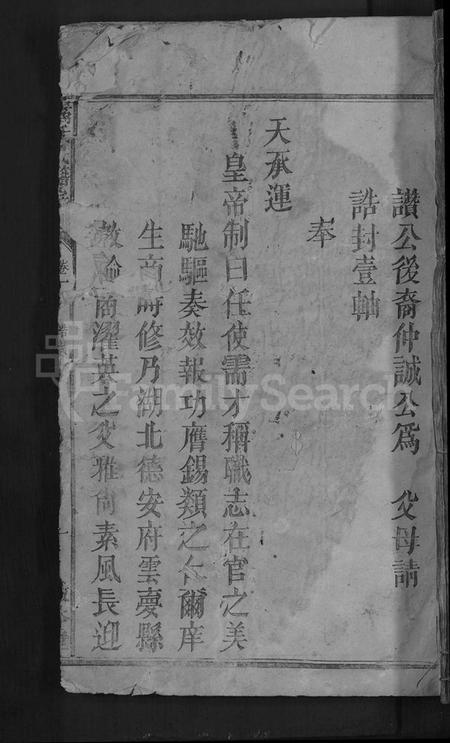 讚公後裔仲誠公爲 父母請
誥封壹軸
奉
天承運
皇帝制曰任使需才稱職志在官之美
馳驅奏效報功膺錫類之仁爾庠
生商 修乃湖北德安府雲夢縣
教諭商濯英之父雅尚素風長迎
FamilySearch